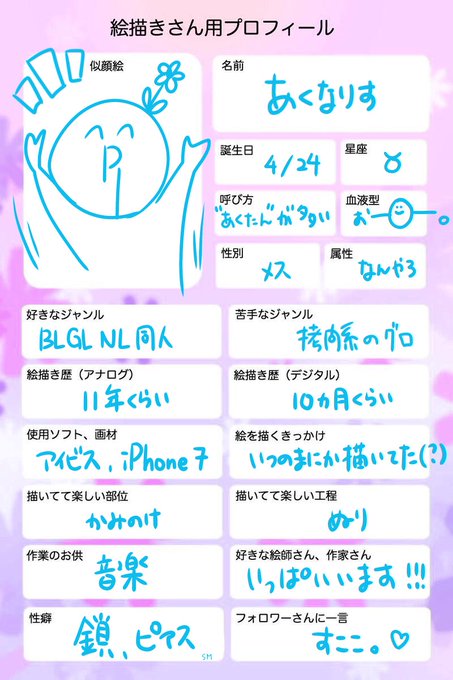 絵描きさん用プロフィール
似顔絵
名前
あくなりす
誕生日
4/24
星座
♉
呼び方
"あくたん"が多い
血液型
おー。
性別
メス
属性
なんやろ
好きなジャンル
BLGL NL 同人
苦手なジャンル
拷問系のグロ
絵描き歴（アナログ）
11年くらい
絵描き歴（デジタル）
10ヵ月くらい
使用ソフト、画材
アイビス、iPhone7
絵を描くきっかけ
いつのまにか描いてた(?)
描いてて楽しい部位
かみのけ
描いてて楽しい工程
ぬり
作業のお供
音楽
好きな絵師さん、作家さん
いっぱいいます!!!
性癖
鎖、ピアス
SM
フォロワーさんに一言
すここ。♡